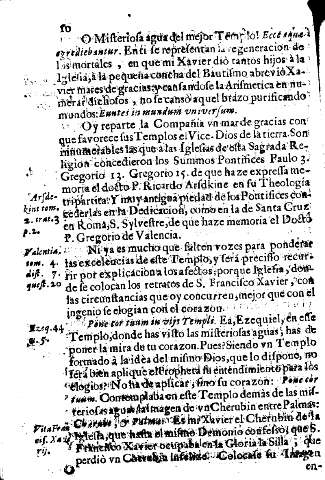 50
O Misteriosa agua del mejor Templo! Ecce aquæ
egrediebantur. En ti se representan la regeneracion de
los mortales, en que mi Xavier diò tantos hijos à la
Iglesia, à la pequeña concha del Bautismo abreviò Xa-
vier mares de gracias; y cansandose la Arismetica en nu-
merar dichosos, no se cansò aquel brazo purificando
mundos: Euntes in mundum universum.
Oy reparte la Compañia vn mar de gracias con
que favorece sus Templos el Vice-Dios de la tierra. Son
innumerables las que a las Iglesias de esta Sagrada Re-
ligion concedieron los Summos Pontifices Paulo 3.
Gregorio 13. Gregorio 15. de que haze expressa me-
moria el docto P. Ricardo Arsdkine en su Theologia
tripartita: Y muy antigua piedad de los Pontifices con-
cederlas en la Dedicacion, como en la de Santa Cruz
en Roma, S. Sylvestre, de que haze memoria el Docto
P. Gregorio de Valencia.
Arsde-
kine tom.
2. trat. 3
p. 2.
Ni ya es mucho que falten vozes para ponderar
las excelencias de este Templo, y serà preciso recur-
rir por explicacion a los afectos: porque Iglesia, don-
de se colocan los retratos de S. Francisco Xavier, con
las circunstancias que oy concurren, mejor que con el
ingenio se elogian con el corazon.
Valencia.
tom. 4.
disst. 7.
quæst. 20
Pone cor tuum in vijs Templi. Ea, Ezequiel, en este
Templo, donde has visto las misteriosas aguas, has de
poner la mira de tu corazon. Pues? Siendo vn Templo
formado à la idea del mismo Dios, que lo dispone, no
serà bien aplique el Propheta su entendimiento para los
elogios? No ha de aplicar, sino su corazon: Pone cor
tuum. Contemplaba en este Templo demàs de las mis-
teriosas aguas la Imagen de vn Cherubin entre Palmas:
Ezeq. 44
n. 5.
Cherubin, & Palmas. Es mi Xavier el Cherubin de la
Iglesia, que hasta el mismo Demonio confessò, que S.
Francisco Xavier ocupaba en la Gloria la Silla, que
perdiò vn Cherubin Colocase su Imagen
Vita Fran
cis. Xavie
rij.
en-